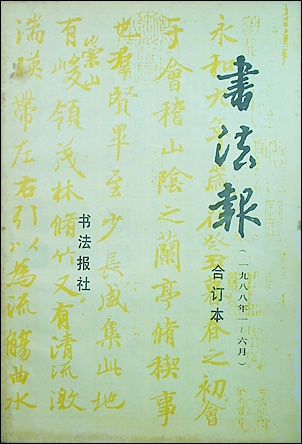 书法報
合订本
(一九八八年一~六月)
书法报社
永和九年岁在癸丑暮春之初會
于會稽山陰之蘭亭脩稧事
也羣賢畢至少長咸集此地
有崇山
峻領茂林脩竹又有清流激
湍暎帶左右引以為流觴曲水